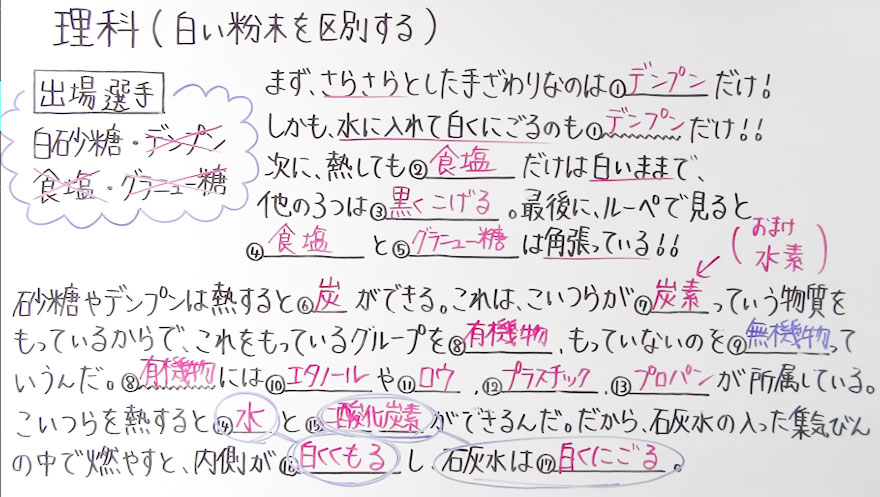 理科(白い粉末を区別する)
出場選手
白砂糖・デンプン
食塩・グラニュー糖
まず、さらさらとした手ざわりなのは①デンプンだけ!
しかも、水に入れて白くにごるのも①デンプンだけ!!
次に、熱しても②食塩だけは白いままで、
他の3つは③黒くこげる。最後に、ルーペで見ると
④食塩と⑤グラニュー糖は角張っている!!
(おまけ
水素)
砂糖やデンプンは熱すると⑥炭ができる。これは、こいつらが⑦炭素っていう物質を
もっているからで、これをもっているグループを⑧有機物、もっていないのを⑨無機物って
いうんだ。⑧有機物には⑩エタノールや⑪ロウ、⑫プラスチック、⑬プロパンが所属している。
こいつらを熱すると⑭水と⑮二酸化炭素ができるんだ。だから、石灰水の入った集気びん
の中で燃やすと、内側が⑯白くくもるし、石灰水は⑰白くにごる。